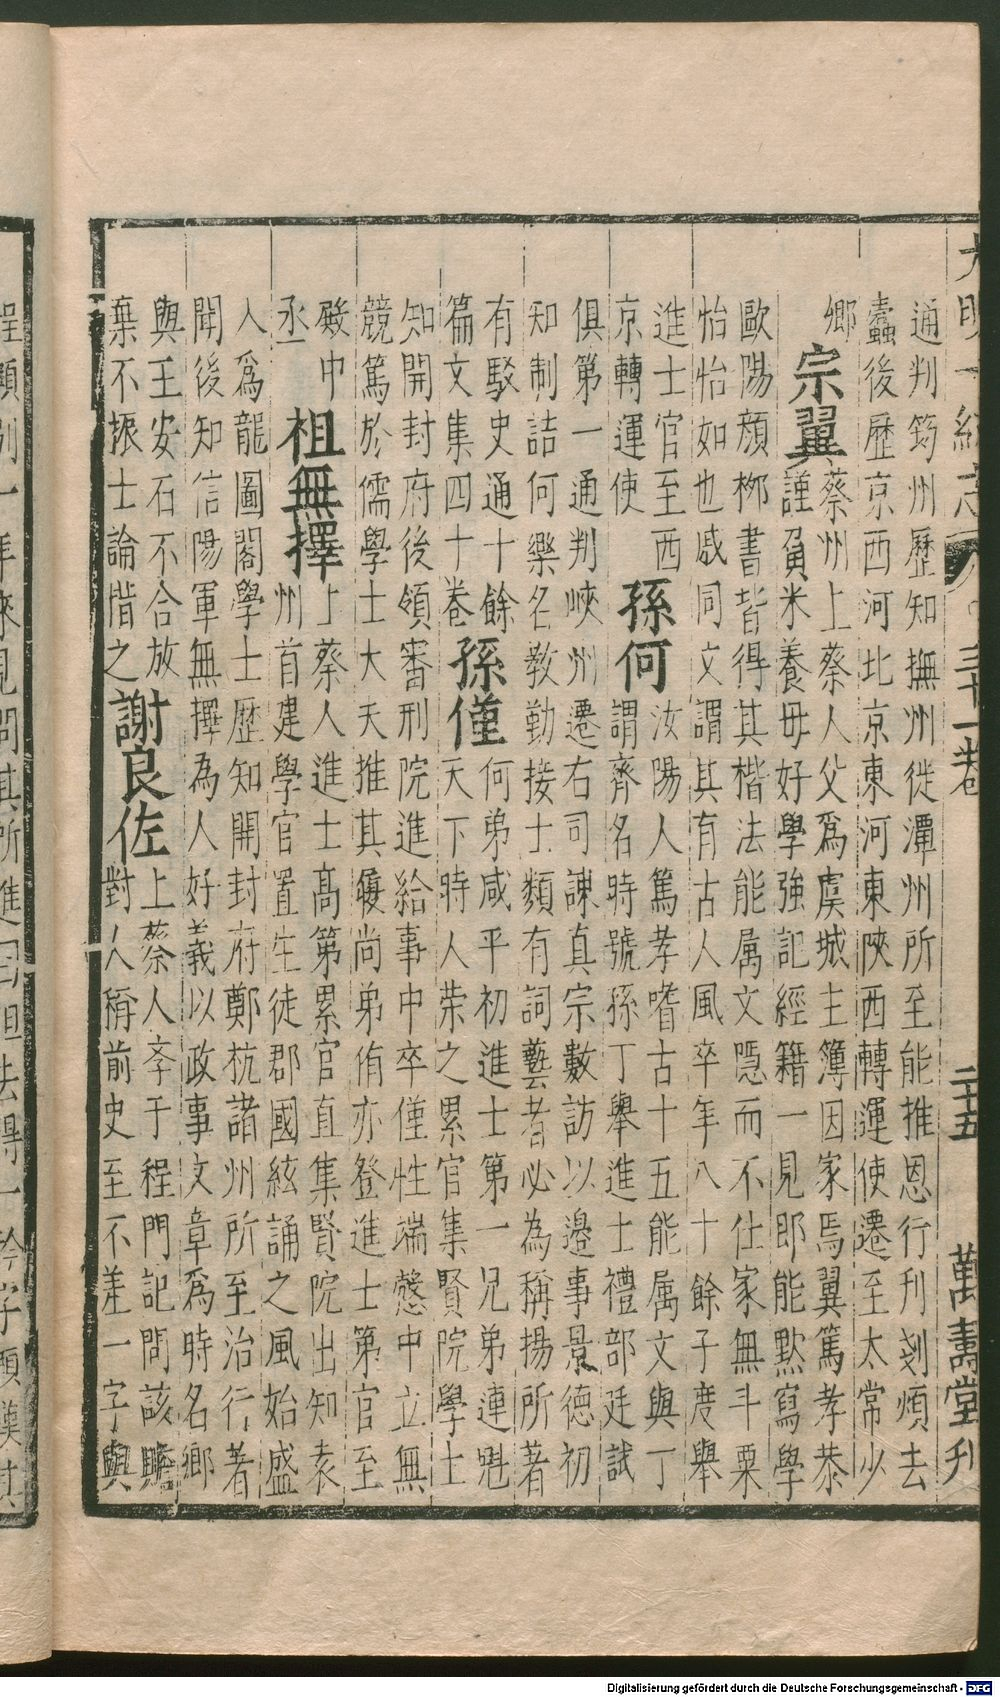 大明一統志 三十一卷 二十五 萬壽堂刊
通判筠州歷知撫州徙潭州所至能推恩行刊刻煩去
蠹後歷京西河北京東河東陝西轉運使遷至太常少
鄉
宗翼
蔡州上蔡人父爲虞城主簿因家焉翼篤孝恭
謹負米養母好學強記經籍一見即能默寫學
歐陽顔柳書皆得其楷法能属文隱而不仕家無斗粟
怡怡如也戚同文謂其有古人風卒年八十餘子度舉
進士官至西
京轉運使
孫何
汝陽人篤孝嗜古十五能属文與丁
謂齊名時號孫丁舉進士禮部廷試
俱第一通判峽州遷右司諫真宗數訪以邊事景德初
知制誥何樂名教勤接士類有詞藝者必為稱揚所著
有駁史通十餘
篇文集四十卷
孫僅
何弟咸平初進士第一兄弟連魁
天下時人荣之累官集賢院學士
知開封府後領審刑院進給事中卒僅性端慤中立無
競篤於儒學士大夫推其履尚弟侑亦登進士第官至
殿中
丞
祖無擇
上蔡人進士高第累官直集賢院出知袁
州首建學官置生徒郡國絃誦之風始盛
入爲龍圖閣學士歷知開封府鄭杭諸州所至治行著
聞後知信陽軍無擇為人好義以政事文章爲時名鄉
與王安石不合放
棄不振士論惜之
謝良佐
上蔡人斈于程門記問該贍
對人稱前史至不差一字與
程顥別一年來見問其所進曰但去得一矜字顥嘆其
Digitalisierung gefördert durch die Deutsche Forschungsgemeinschaft - DFG